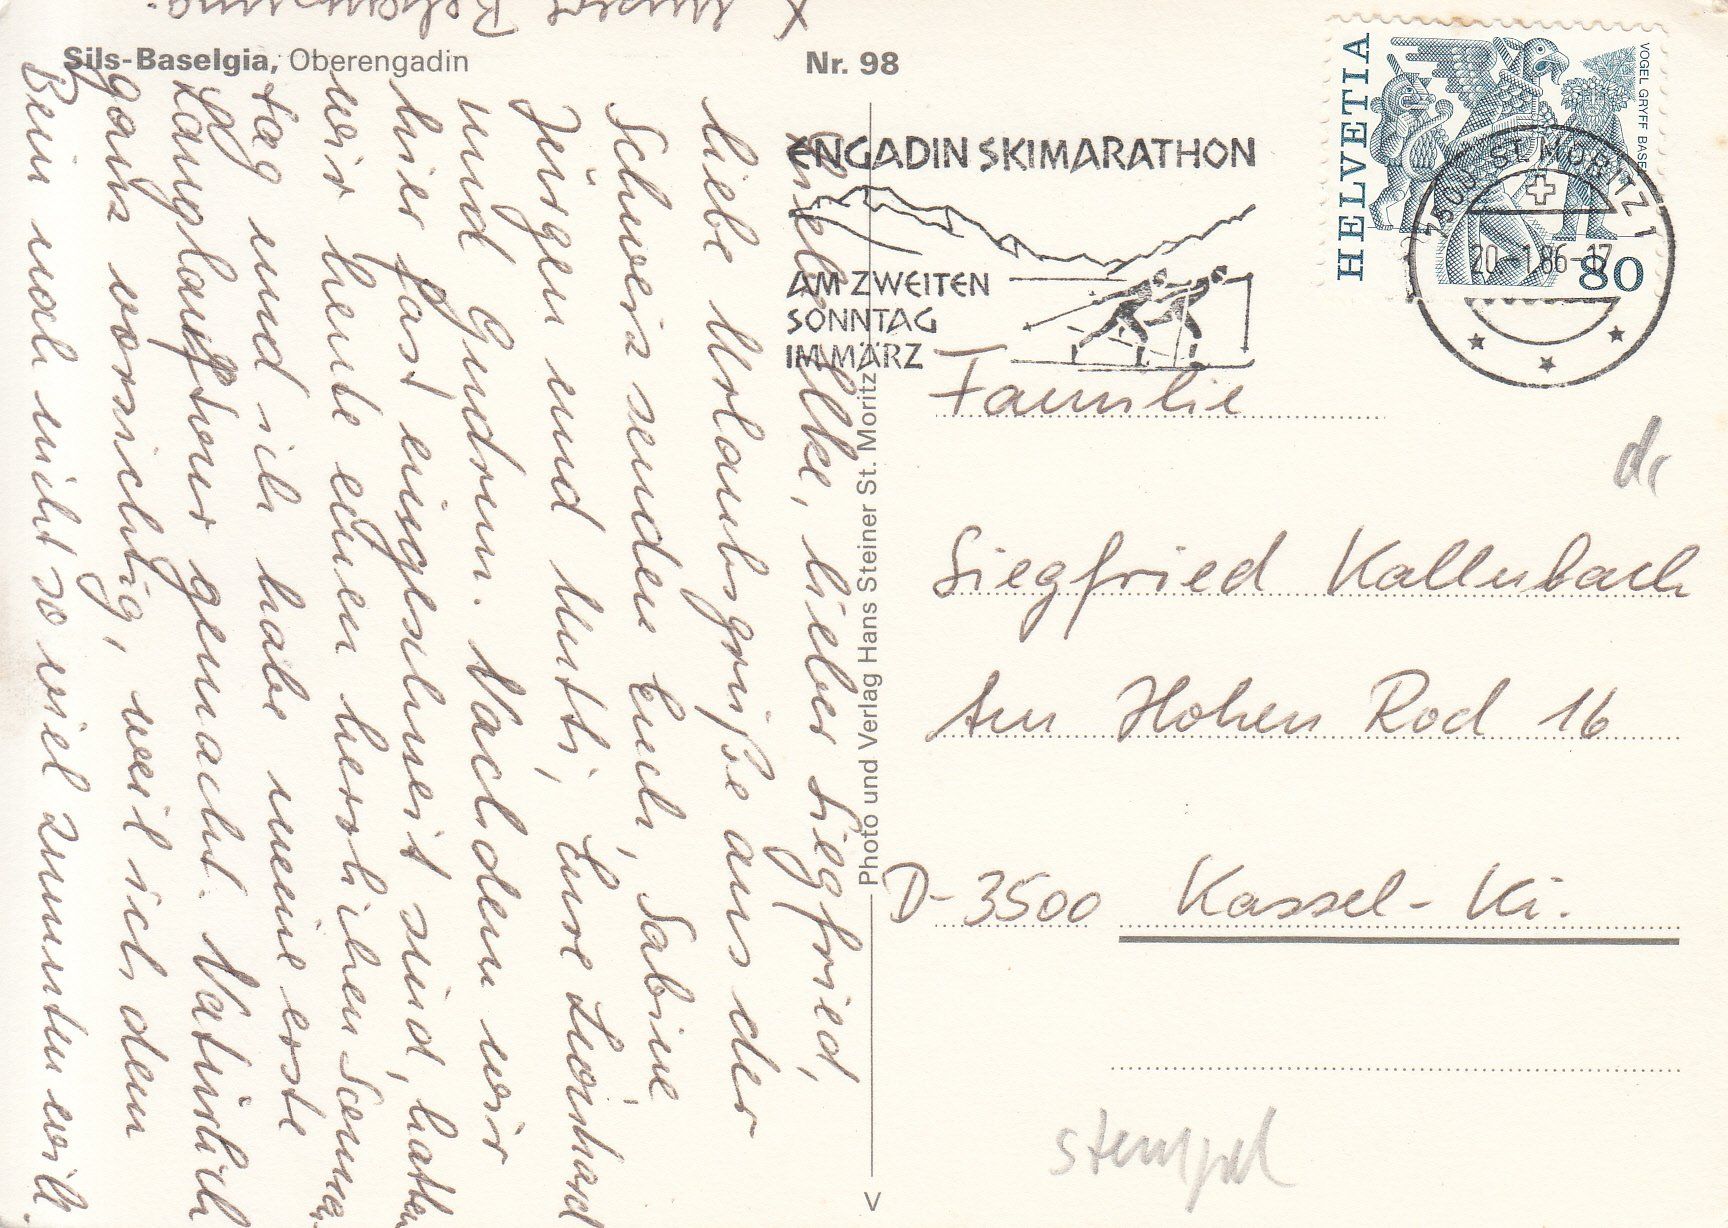 Sils-Baselgia, Oberengadin
Nr. 98
HELVETIA
VOGEL GRYFF BASE
80
7500 ST. MORITZ 1
20.-1.86-17
ENGADIN SKIMARATHON
AM ZWEITEN
SONNTAG
IM MÄRZ
Photo und Verlag Hans Steiner St. Moritz
Familie
Siegfried Kallenbach
Am Hohen Rod 16
D-3500 Kassel-Ki.
Elke, lieber Siegfried,
liebe Urlaubsgrüße aus der
Schweiz senden Euch, Sabine,
Jürgen und Mutti, Eure Leonhard
und Gudrun. Nachdem wir
hier fast eingeschneit sind, hatten
wir heute einen herrlichen Sonnen-
tag und ich habe meine erste
Langlauftour gemacht. Natürlich
ganz vorsichtig, weil ich dem
Bein noch nicht so viel zumuten will.
x
stempel